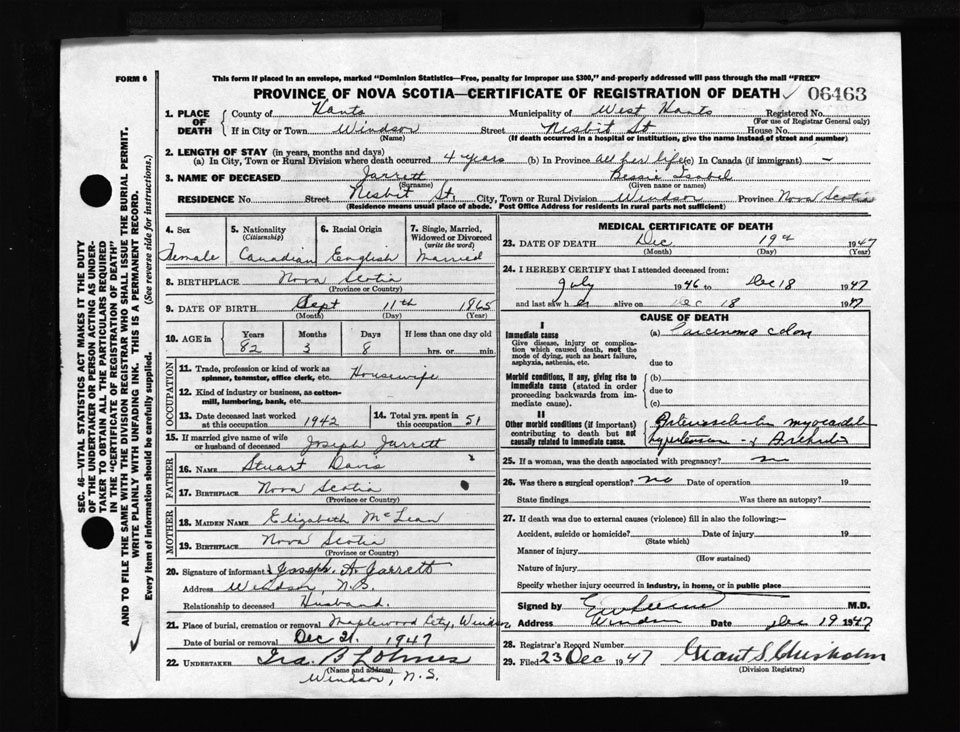 This form if placed in an envelope, marked "Dominion Statistics—Free, penalty for improper use $300," and properly addressed will pass through the mail "FREE"
FORM 6
PROVINCE OF NOVA SCOTIA—CERTIFICATE OF REGISTRATION OF DEATH 06463
SEC. 46—VITAL STATISTICS ACT MAKES IT THE DUTY
OF THE UNDERTAKER OR PERSON ACTING AS UNDER-
TAKER TO OBTAIN ALL THE PARTICULARS REQUIRED
IN THE "CERTIFICATE OF REGISTRATION OF DEATH"
AND TO FILE THE SAME WITH THE DIVISION REGISTRAR WHO SHALL ISSUE THE BURIAL PERMIT.
WRITE PLAINLY WITH UNFADING INK. THIS IS A PERMANENT RECORD.
Every item of information should be carefully supplied. (See reverse side for instructions.)
1. PLACE OF DEATH
County of Hants Municipality of West Hants Registered No.
(For use of Registrar General only)
If in City or Town Windsor Street Nesbit St. House No.
(Name) (If death occurred in a hospital or institution, give the name instead of street and number)
2. LENGTH OF STAY (in years, months and days)
(a) In City, Town or Rural Division where death occurred 4 years (b) In Province all her life (c) In Canada (if immigrant) —
3. NAME OF DECEASED Jarrett Bessie Isabel
(Surname) (Given name or names)
RESIDENCE No. Street Nesbit St. City, Town or Rural Division Windsor Province Nova Scotia
(Residence means usual place of abode. Post Office Address for residents in rural parts not sufficient)
4. Sex
Female
5. Nationality
(Citizenship)
Canadian
6. Racial Origin
English
7. Single, Married,
Widowed or Divorced
(write the word)
Married
8. BIRTHPLACE Nova Scotia
(Province or Country)
9. DATE OF BIRTH Sept 11th 1865
(Month) (Day) (Year)
10. AGE in
Years Months Days If less than one day old
82 3 8 hrs. or min.
OCCUPATION
11. Trade, profession or kind of work as
spinner, teamster, office clerk, etc. Housewife
12. Kind of industry or business, as cotton-
mill, lumbering, bank, etc.
13. Date deceased last worked
at this occupation 1942
14. Total yrs. spent in
this occupation 51
15. If married give name of wife
or husband of deceased Joseph Jarrett
FATHER
16. NAME Stuart Davis
17. BIRTHPLACE Nova Scotia
(Province or Country)
MOTHER
18. MAIDEN NAME Elizabeth McLean
19. BIRTHPLACE Nova Scotia
(Province or Country)
20. Signature of informant Joseph A. Jarrett
Address Windsor, N.S.
Relationship to deceased Husband.
21. Place of burial, cremation or removal Maplewood Windsor
Date of burial or removal Dec 21. 1947
22. UNDERTAKER Ira. B Lohnes
(Name and address)
Windsor, N.S.
MEDICAL CERTIFICATE OF DEATH
23. DATE OF DEATH Dec 19 1947
(Month) (Day) (Year)
24. I HEREBY CERTIFY that I attended deceased from:
July 1946 to Dec 18 1947
and last saw her alive on Dec 18 1947
CAUSE OF DEATH
I
Immediate cause
Give disease, injury or complica-
tion which caused death, not the
mode of dying, such as heart failure,
asphyxia, asthenia, etc.
(a) Carcinoma colon
due to
Morbid conditions, if any, giving rise to
immediate cause (stated in order
proceeding backwards from im-
mediate cause).
(b)
due to
(c)
II
Other morbid conditions (if important)
contributing to death but not
causally related to immediate cause.
25. If a woman, was the death associated with pregnancy? no
26. Was there a surgical operation? no Date of operation 19
State findings Was there an autopsy?
27. If death was due to external causes (violence) fill in also the following:—
Accident, suicide or homicide? Date of injury 19
(State which)
Manner of injury
(How sustained)
Nature of injury
Specify whether injury occurred in industry, in home, or in public place
Signed by M.D.
Address Windsor Date Dec 19 1947
28. Registrar's Record Number
29. Filed 23 Dec 1947 Grant S. Chisholm
(Division Registrar)